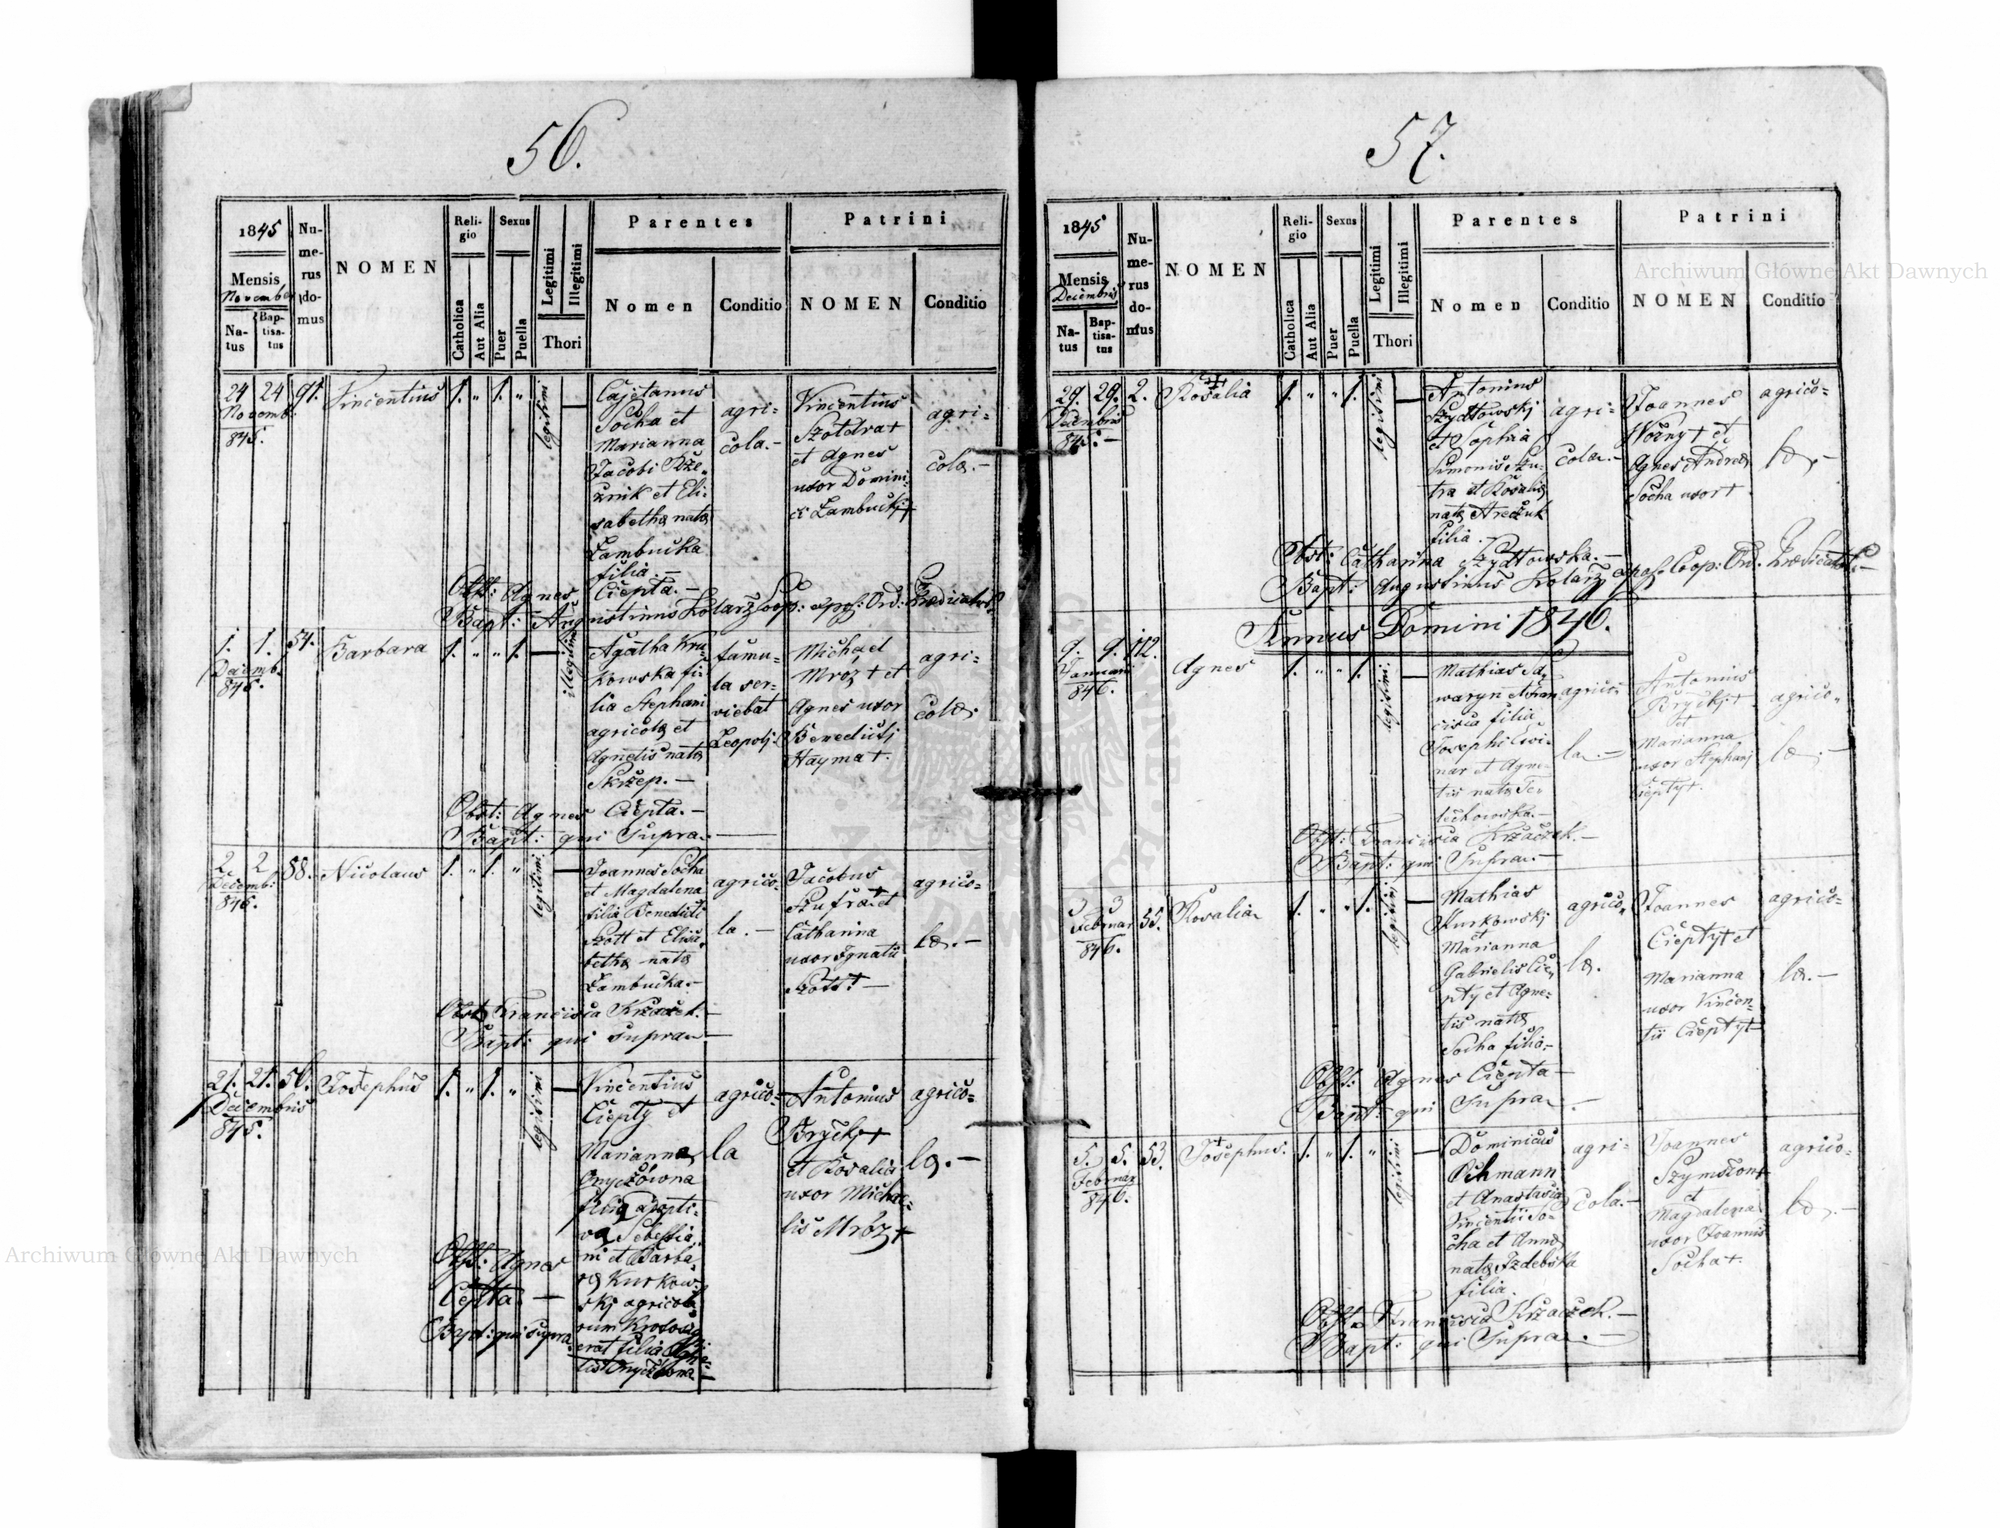 56.
1845
Mensis
Novembr
Na-
tus
Bap-
tisa-
tus
Nu-
me-
rus
do-
mus
NOMEN
Reli-
gio
Catholica
Aut Alia
Sexus
Puer
Puella
Legitimi
Illegitimi
Thori
Parentes
Nomen
Conditio
Patrini
NOMEN
Conditio
24 24 91. Vincentius 1. „ 1. „ legitimi —
Novemb.
845.
Cajetanus
Socha et
Marianna
Jacobi
et Eli-
sabetha nata
Zambucka
filia. —
agri-
cola. —
Vincentius
Szoldra +
et Agnes
uxor Domini-
ci Zambuckj +
agri-
colæ. —
Obst: Agnes Ciepta. —
Bapt: Augustinus Kolarz Coop: expos. Ord: Prædicator.
1. 1. 54. Barbara 1. „ „ 1. — illegitimi
Decemb.
845.
Agatha Kru-
kowska fi-
lia Stephani
agricola et
Agnetis nata
Skrzep. —
famu-
la ser-
viebat
Leopoli
Michael
Mróz + et
Agnes uxor
Benedicti
Hayma +.
agri-
colæ.
Obst: Agnes Ciepta. —
Bapt: qui Supra. —
2. 2 88. Nicolaus 1. „ 1. „ legitimi —
Decemb.
845.
Joannes Socha
et Magdalena
filia Benedicti
Szott et Elisa-
betha nata
Zambucka. —
agrico-
la. —
Jacobus
Szufra et
Catharina
uxor Ignatii
Szott + —
agrico-
læ. —
Obst: Francisca Krzaczek. —
Bapt: qui supra —
21. 21. 56. Josephus 1. „ 1. „ legitimi —
Decembris
845.
Vincentius
Ciepty et
Marianna
Onyczówna
filia adopti-
va Sebestia-
ni et Barba-
ra Kurkow-
skj agricola-
rum
erat filia Agne-
tis
agrico-
la
Antonius
Bryckj +
et Rosalia
uxor Micha-
lis Mróz +
agrico-
læ. —
Obst: Agnes
Ciepta. —
Bapt: qui supra.
57.
1845
Mensis
Decembris
Na-
tus
Bap-
tisa-
tus
Nu-
me-
rus
do-
mus
NOMEN
Reli-
gio
Catholica
Aut Alia
Sexus
Puer
Puella
Legitimi
Illegitimi
Thori
Parentes
Nomen
Conditio
Patrini
NOMEN
Conditio
29. 29. 2. Rosalia 1. „ „ 1. legitimi —
Decembris
845. —
Antonius
Szydłowskj
et Sophia
Simonis Szu-
tra et Rosalia
nata
filia.
agri-
cola. —
Joannes
Wozny + et
Agnes Andreæ
Socha uxor +
agrico-
læ. —
Obst: Catharina Szydłowska. —
Bapt: Augustinus Kolarz expos. Coop: Ord. Prædicator. —
Annus Domini 1846.
9. 9. 112. Agnes 1. „ „ 1. legitimi. —
Januari
846.
Mathias Sa-
waryn et Fran-
cisca filia
Josephi
et Agne-
tis nata Te-
lichowska. —
agrico-
la. —
Antonius
Bryckj +
et
Marianna
uxor Stephani
Ciepty +.
agrico-
læ. —
Obst: Francisca Krzaczek. —
Bapt: qui Supra. —
3 3 55. Rosalia 1. „ „ 1. legitimi —
Februar
846.
Mathias
Kurkowskj
et
Marianna
Gabrielis Cie-
pty et Agne-
tis nata
Socha filia —
agrico-
la.
Joannes
Ciepty + et
Marianna
uxor Vincen-
tii Ciepty +
agrico-
læ. —
Obst: Agnes Ciepta —
Bapt: qui Supra. —
5. 5. 53. Josephus. 1. „ 1. „ legitimi —
Februar
846.
Dominicus
Ochmann
et Anastasia
Vincentii So-
cha et Anna
nata Izdebska
filia.
agri-
cola. —
Joannes
Szymston +
et
Magdalena
uxor Joannis
Socha +.
agrico-
læ. —
Obst: Francisca Krzaczek. —
Bapt: qui Supra. —
Archiwum Główne Akt Dawnych
Archiwum Główne Akt Dawnych